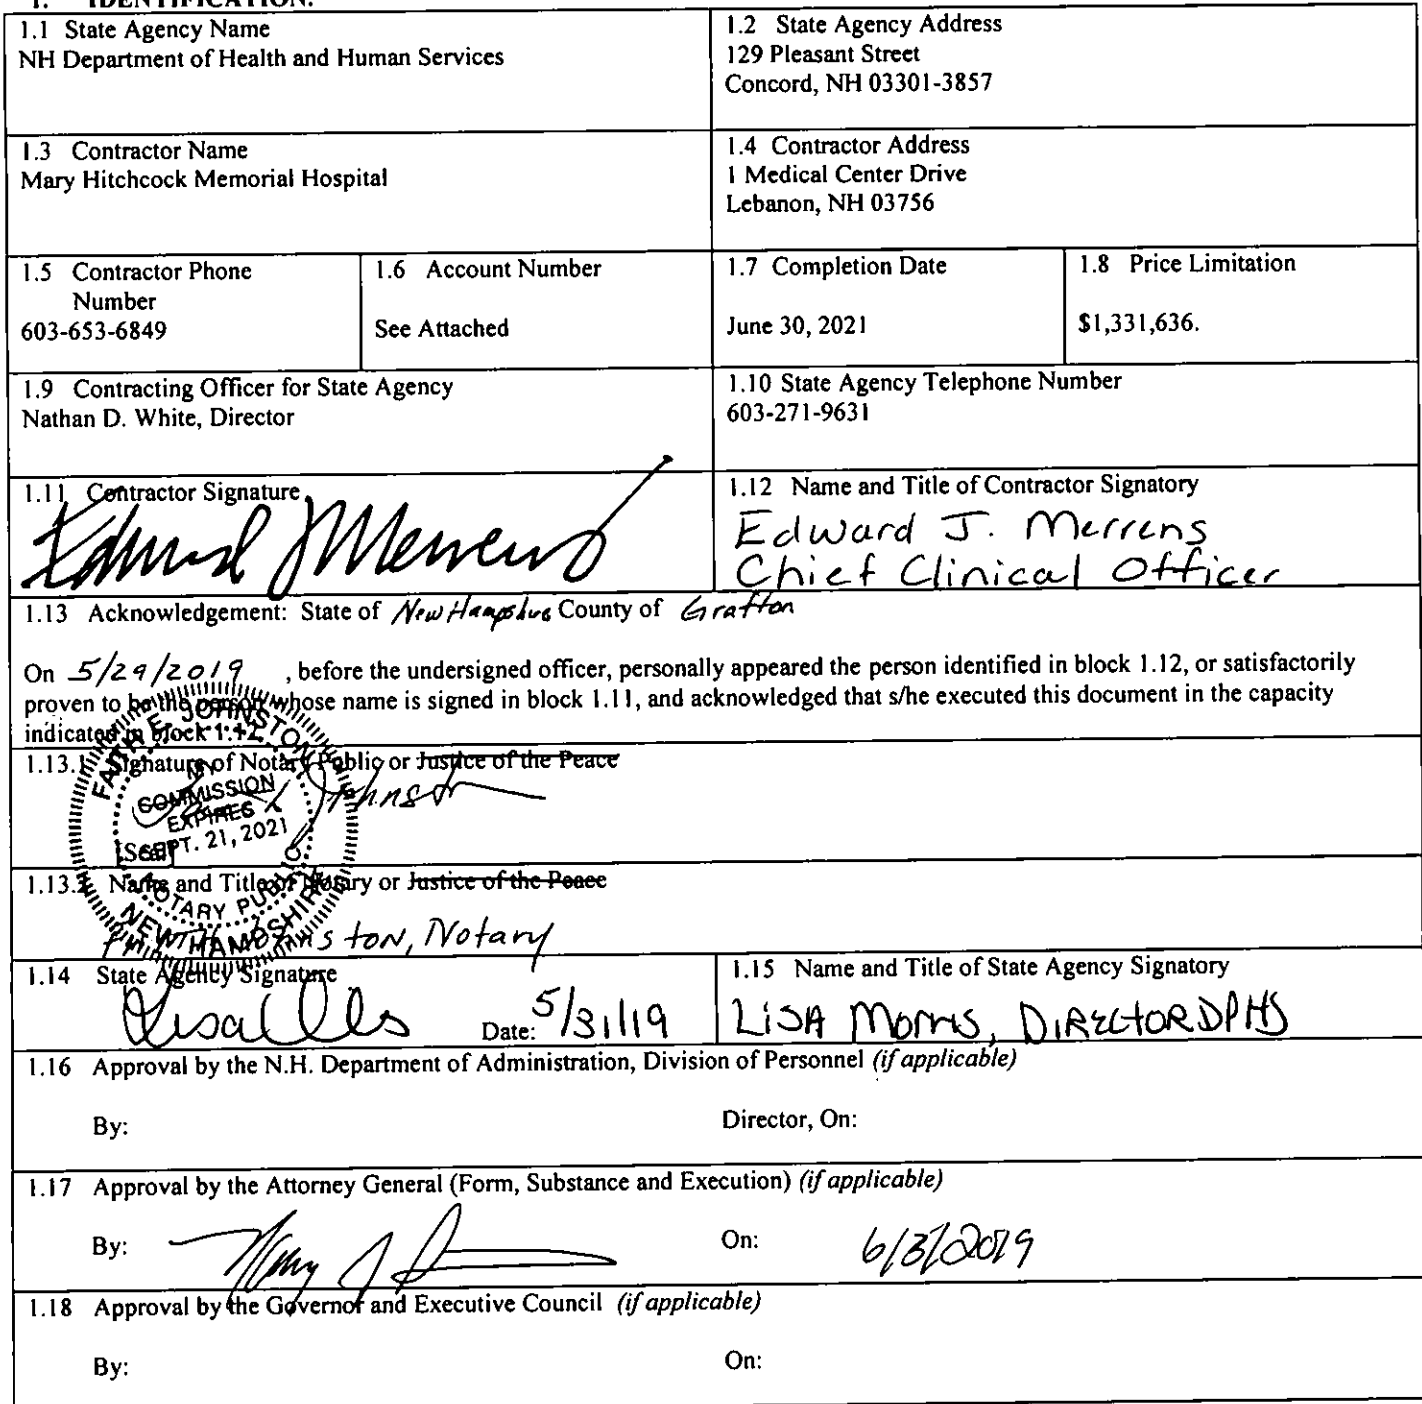 1. IDENTIFICATION.
1.1 State Agency Name
NH Department of Health and Human Services
1.2 State Agency Address
129 Pleasant Street
Concord, NH 03301-3857
1.3 Contractor Name
Mary Hitchcock Memorial Hospital
1.4 Contractor Address
1 Medical Center Drive
Lebanon, NH 03756
1.5 Contractor Phone
Number
603-653-6849
1.6 Account Number
See Attached
1.7 Completion Date
June 30, 2021
1.8 Price Limitation
$1,331,636.
1.9 Contracting Officer for State Agency
Nathan D. White, Director
1.10 State Agency Telephone Number
603-271-9631
1.11 Contractor Signature
Edward J Merrens
1.12 Name and Title of Contractor Signatory
Edward J. Merrens
Chief Clinical Officer
1.13 Acknowledgement: State of New Hampshire County of Grafton
On 5/29/2019 , before the undersigned officer, personally appeared the person identified in block 1.12, or satisfactorily
proven to be the person whose name is signed in block 1.11, and acknowledged that s/he executed this document in the capacity
indicated in block 1.12.
1.13.1 Signature of Notary Public or Justice of the Peace
Johnston
[Seal]
FAITH E. JOHNSTON
MY
COMMISSION
EXPIRES
SEPT. 21, 2021
NOTARY PUBLIC
NEW HAMPSHIRE
1.13.2 Name and Title of Notary or Justice of the Peace
Faith Johnston, Notary
1.14 State Agency Signature
Date: 5/31/19
1.15 Name and Title of State Agency Signatory
LISA MORRIS, DIRECTOR DPHS
1.16 Approval by the N.H. Department of Administration, Division of Personnel (if applicable)
By:
Director, On:
1.17 Approval by the Attorney General (Form, Substance and Execution) (if applicable)
By:
On: 6/3/2019
1.18 Approval by the Governor and Executive Council (if applicable)
By:
On: